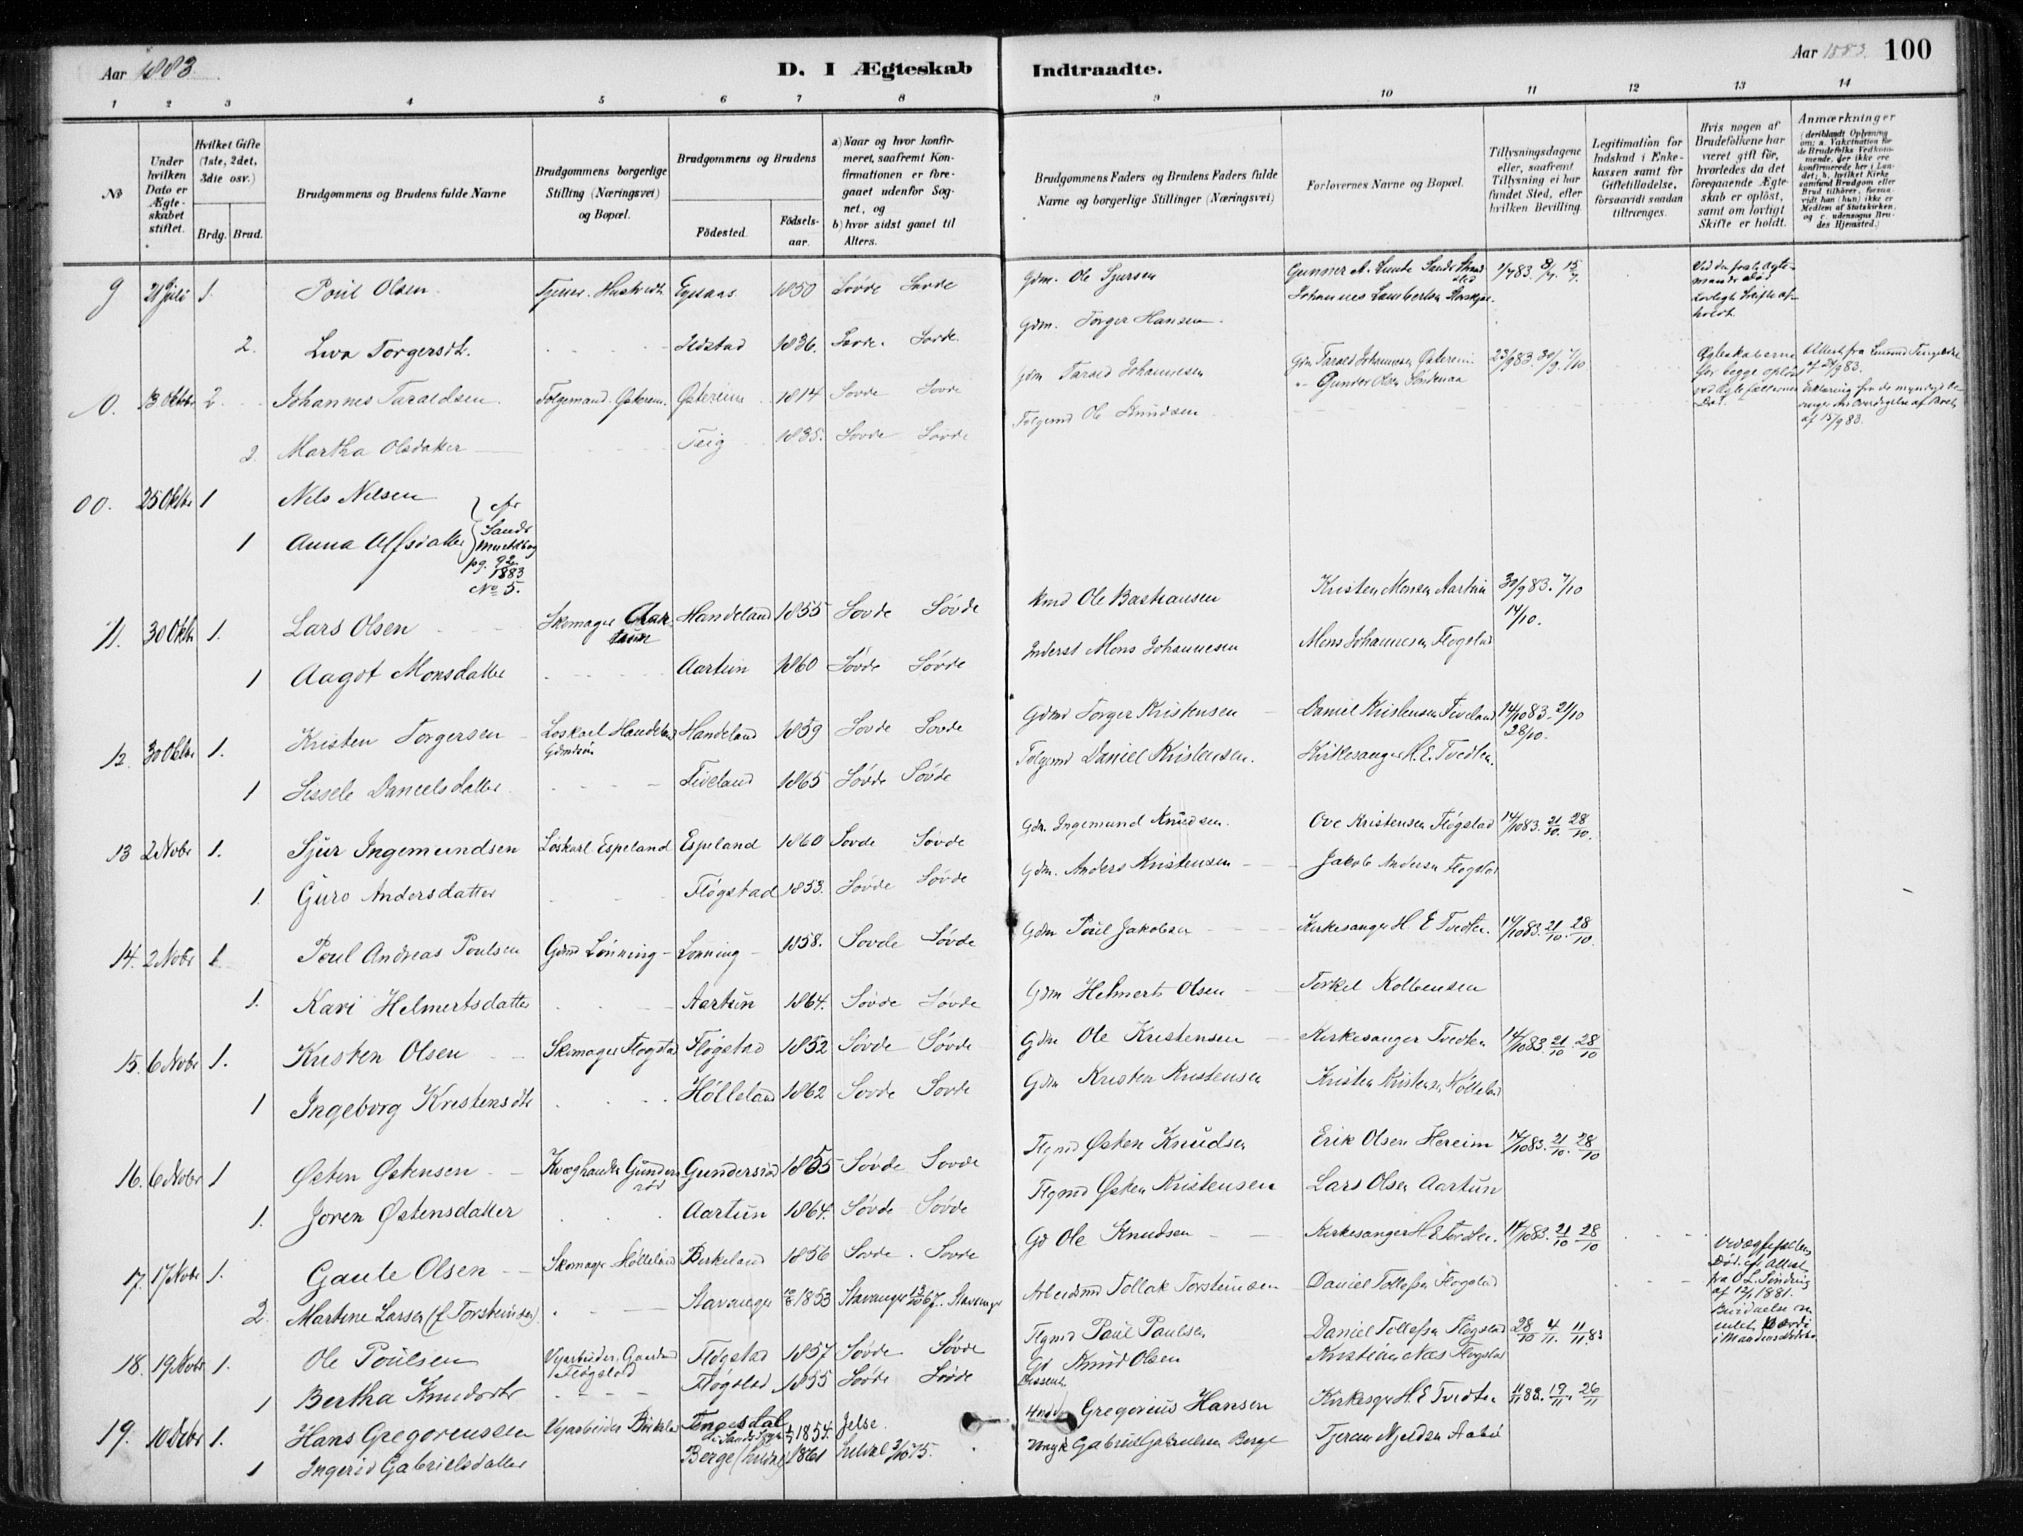 Aar 1883.
D. I Ægteskab
Indtraadte.
Aar 1883. 100
1 2 3 4 5 6 7 8 9 10 11 12 13 14
No
Under hvilken Dato er Ægteskabet stiftet.
Hvilket Gifte (1ste, 2det, 3die osv.)
Brdg. Brud.
Brudgommens og Brudens fulde Navne
Brudgommens borgerlige Stilling (Næringsvei) og Bopæl.
Brudgommens og Brudens
Födested. Födselsaar.
a) Naar og hvor konfirmeret, saafremt Konfirmationen er foregaaet udenfor Sognet, og
b) hvor sidst gaaet til Alters.
Brudgommens Faders og Brudens Faders fulde Navne og borgerlige Stillinger (Næringsvei)
Forlovernes Navne og Bopæl.
Tillysningsdagene eller, saafremt Tillysning ei har fundet Sted, efter hvilken Bevilling.
Legitimation for Indskud i Enkekassen samt for Giftetilladelse, forsaavidt saadan tiltrænges.
Hvis nogen af Brudefolkene har været gift för, hvorledes da det foregaaende Ægteskab er oplöst, samt om lovligt Skifte er holdt.
Anmærkninger (deriblandt Oplysning om: a. Vakcination for de Brudefolks Vedkommende, der ikke ere konfirmerede her i Landet; b. hvilket Kirkesamfund Brudgom eller Brud tilhører, forsaavidt han (hun) ikke er Medlem af Statskirken, og c. udensogns Brudes Hjemsted.)
9 21 Juli 1. Poul Olsen 1850 Søvde Søvde Gdm. Ole Sjursen
2. Liva Torgersdt. 1836. Søvde. Søvde. Gdm. Torger Hansen
10. 13 Oktbr 2 Johannes Taraldsen Østereim 1814 Søvde Søvde Gdm Tarald Johannesen Gdm Tarald Johannesen Østereim 23/9 83. 30/9. 7/10
2. Martha Olsdatter Teig 1835. Søvde Søvde Folgemd Ole Knudsen
00. 25 Oktbr 1 Nils Nilsen
1 Anna Alfsdatter
cfr Sands pg. 92 1883 No 5.
11. 30 Oktbr 1. Lars Olsen Skomager Aartun Handeland 1855 Søvde Søvde Ole Bastiansen Kristen Monsen Aartun 30/9 83. 7/10 14/10.
1 Aagot Monsdatter Aartun 1860 Søvde Søvde Inderst Mons Johannesen Mons Johannesen Fløgstad
12. 30 Oktbr 1. Kristen Torgersen Løskarl Handeland Gdmdsøn Handeland 1859 Søvde Søvde Gdmd Torger Kristensen Daniel Kristensen Tveland 14/10 83. 21/10 28/10.
1 Sissele Danielsdatter. 1865 Søvde Søvde Folgemd Daniel Kristensen. Kirkesanger H. E. Tvedten.
13 2 Novbr 1. Sjur Ingemundsen Løskarl Espeland Espeland 1860 Søvde Søvde Gdm. Ingemund Knudsen. Ove Kristensen Fløgstad 14/10 83. 21/10. 28/10.
1. Guro Andersdatter Fløgstad 1853. Søvde Søvde Gdm. Anders Kristensen Jakob Andersen Fløgstad
14. 2 Novbr 1 Poul Andreas Poulsen Gdmd Lønning Lønning 1858. Søvde Søvde Gdm Poul Jakobsen Kirkesanger H. E Tvedten. 14/10 83. 21/10. 28/10.
1. Kari Helmertsdatter Aartun 1864. Søvde Søvde Gdm Helmert Olsen Torkel Kolbensen
15. 6 Novbr 1. Kristen Olsen Skomager Fløgstad Fløgstad 1852 Søvde Søvde Gdm Ole Kristensen Kirkesanger Tvedten 14/10 83. 21/10. 28/10
1 Ingeborg Kristensdtr Hølleland 1862 Søvde Søvde Gdm Kristen Kristensen Kristen Kristensen Hølleland
16. 6 Novbr 1 Østen Østensen 1855 Søvde Søvde Flgmd Østen Knudsen Erik Olsen Hereim 14/10 83. 21/10. 28/10
1. Joren Østensdatter Aartun 1864. Søvde Søvde Flgmd Østen Kristensen Lars Olsen Aartun
17. 17 Novbr 1. Gaute Olsen Skomager Hølleland Birkeland 1856 Søvde. Søvde Gd Ole Knudsen Kirkesanger H. E Tvedten. 14/10 83. 21/10 28/10
2. Martine Larsen (f. Torsteinsen) Stavanger 1853 Stavanger Stavanger Arbeidsmd Tollak Torsteinsen Daniel Tollefsen Fløgstad
18. 19 Novbr 1. Ole Poulsen Fløgstad 1857 Søvde Søvde Flgmd Poul Paulsen Daniel Tollefsen Fløgstad 28/10 4/11. 11/11 83
1 Bertha Knudsdtr Fløgstad 1855 Søvde Søvde Gd Knud Olsen Kristian Næs Fløgstad
19. 10 Debr 1. Hans Gregoriussen Veiarbeider 1854. Jelse. Gregorius Hansen H E Tvedten 11/11 83. 19/11. 26/11
1 Ingerid Gabrielsdatter Berge 1861 Gabriel Gabrielsen Berge